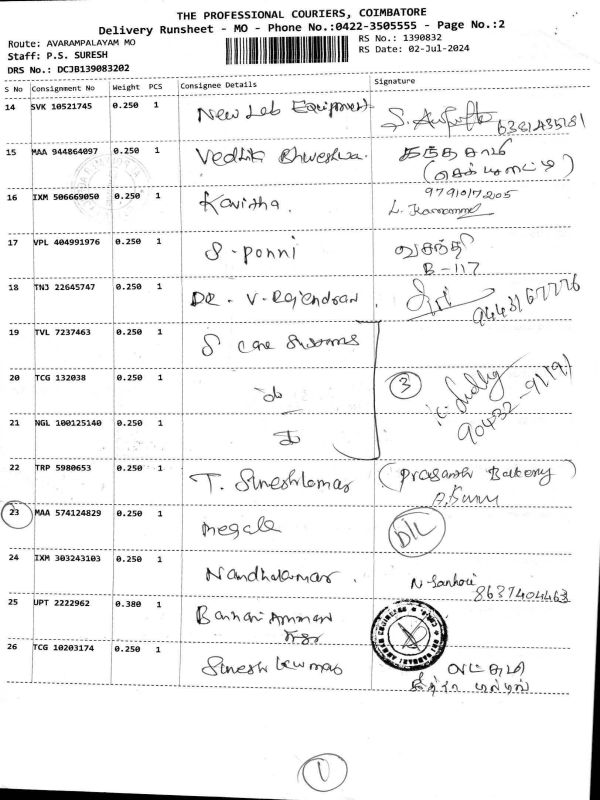 THE PROFESSIONAL COURIERS, COIMBATORE
Delivery Runsheet - MO - Phone No.:0422-3505555 - Page No.:2
Route: AVARAMPALAYAM MO
Staff: P.S. SURESH
DRS No.: DCJB139083202
RS No.: 1390832
RS Date: 02-Jul-2024
S No Consignment No Weight PCS Consignee Details Signature
14 SVK 10521745 0.250 1 New Lab Equipment 6381435181
15 MAA 944864097 0.250 1 Vedhik
16 IXM 506669050 0.250 1 Kavitha. 9791017205
17 VPL 404991976 0.250 1 S-ponni வசந்தி
B-117
18 TNJ 22645747 0.250 1 DR. V-Rajendran 9443167776
19 TVL 7237463 0.250 1 S care Systems
20 TCG 132038 0.250 1 do 3
21 NGL 100125140 0.250 1 do 90432-91191
22 TRP 5980653 0.250 1 T. Sureshkumar (Prasanth Battery)
23 MAA 574124829 0.250 1 megala D/L
24 IXM 303243103 0.250 1 Nandhakumar. 8637404463
25 UPT 2222962 0.380 1 Bannari Amman
26 TCG 10203174 0.250 1 Sureshkumar